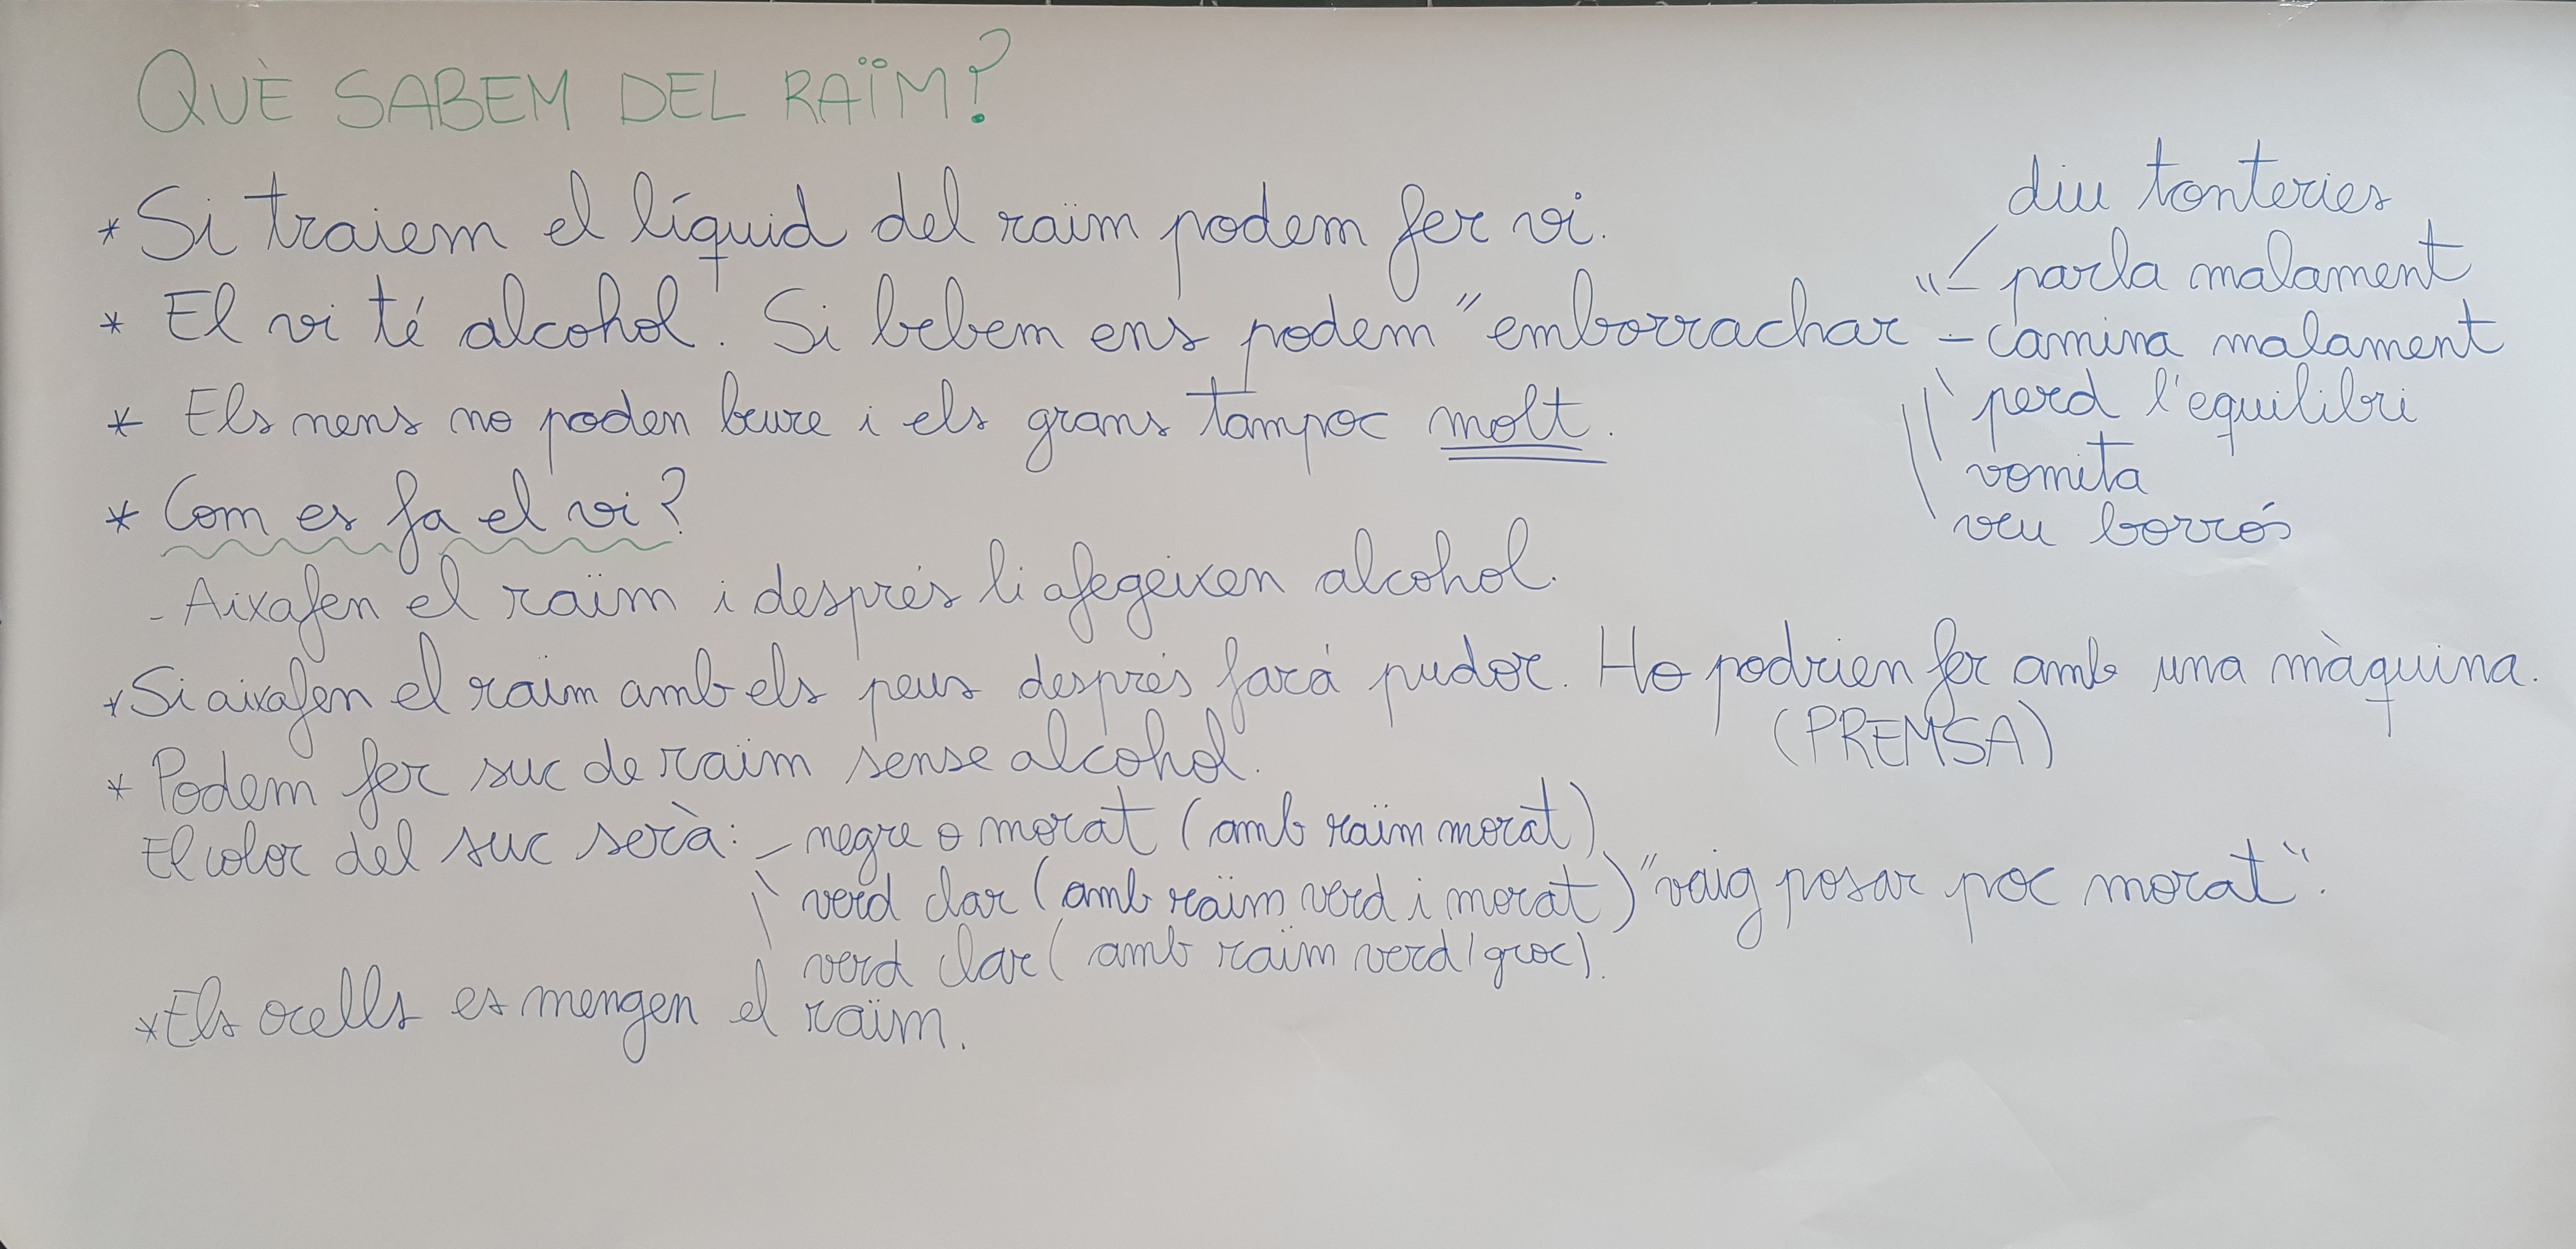 QUÈ SABEM DEL RAÏM?
* Si traiem el líquid del raïm podem fer vi.
* El vi té alcohol. Si bebem ens podem "emborrachar"
diu tonteries
parla malament
- camina malament
perd l'equilibri
vomita
veu borrós
* Els nens no poden beure i els grans tampoc molt.
* Com es fa el vi?
- Aixafen el raïm i després li afegeixen alcohol.
* Si aixafen el raïm amb els peus després farà pudor. Ho podrien fer amb una màquina.
(PREMSA)
* Podem fer suc de raïm sense alcohol.
El color del suc serà: - negre o morat (amb raïm morat)
verd clar (amb raïm verd i morat) "vaig posar poc morat".
verd clar (amb raïm verd/groc).
* Els ocells es mengen el raïm.